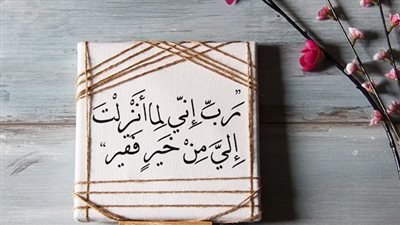 "رَبِّ إِنِّي لِمَا أَنْزَلْتَ
إِلَيَّ مِنْ خَيْرٍ فَقِير"